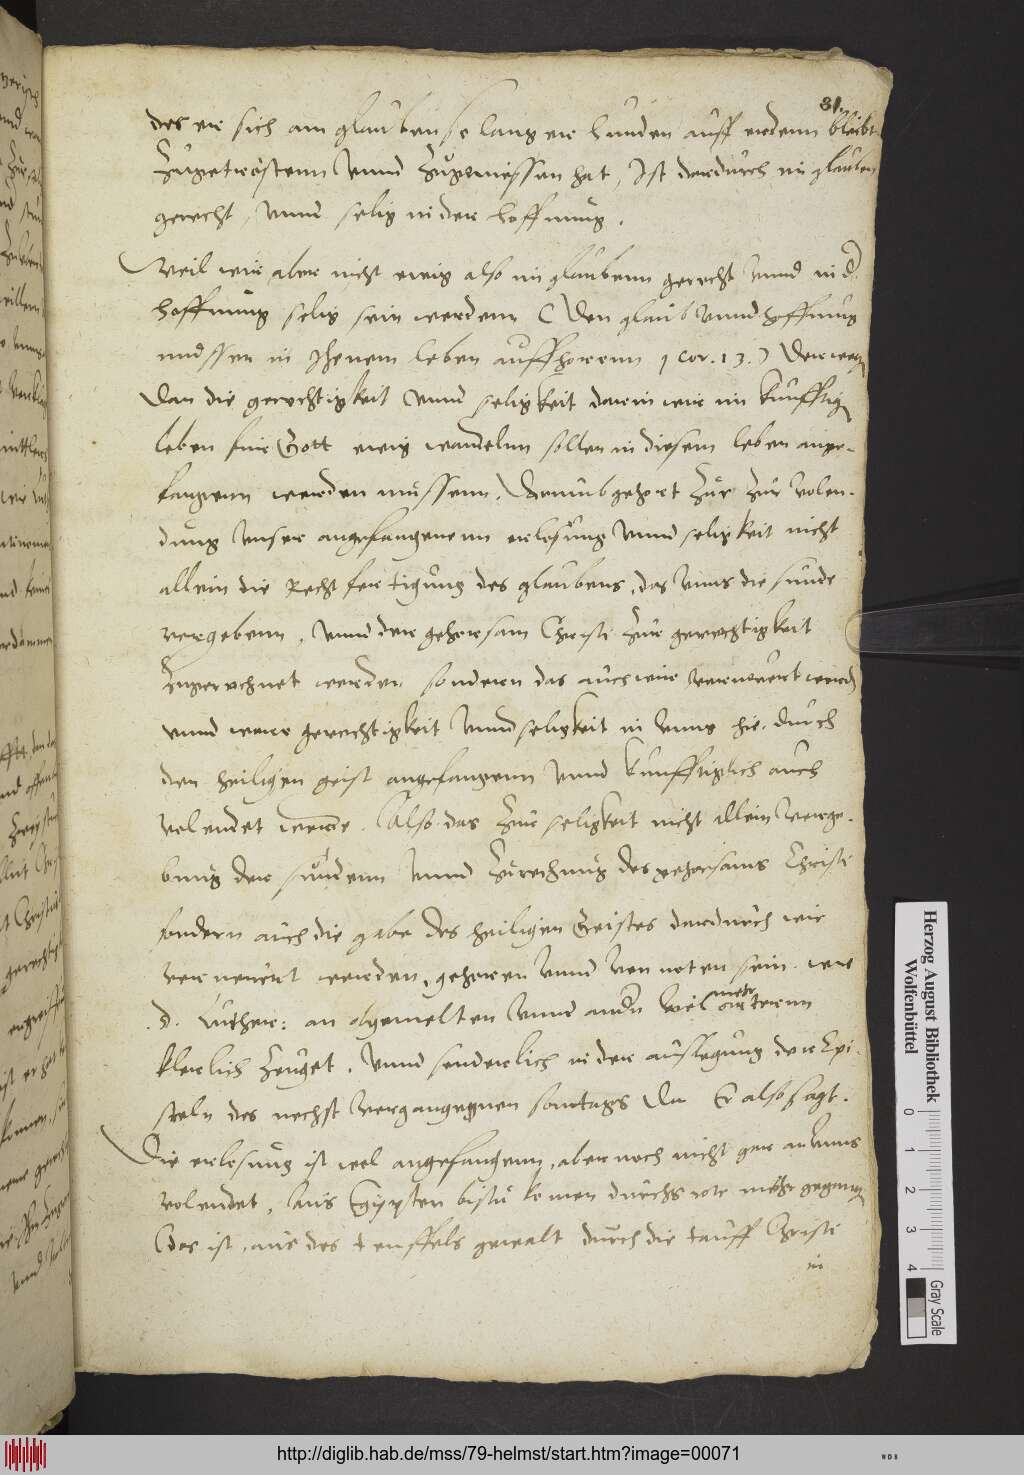 31.
des er sich am glauben so lang er hunden auff erdenn bleibt
Zugetrostenn Vnnd Zugeniessen hat, Ist dardurch im glauben
gerecht, Vnnd selig in der hoffnung.
Weil wir aber nicht ewig also im glaubenn gerecht Vnnd in d.
hoffnung selig sein werdenn (Den glaub Vnnd hoffnung
mussen in Jhenem leben auffhorenn 1 Cor. 13.)
Dan die gerechtigkeit Vnnd seligkeit darin wir im kunfftig
leben fur Gott ewig wandeln sollen in diesem leben ange-
fangenn werden mussenn. Darumb gehort Zur volen-
dung Vnser angefangenenn erlosung Vnnd seligkeit nicht
allein die Rechtfertigung des glaubens, das Vnns die sunde
vergebenn, Vnnd der gehorsam Christi Zur gerechtigkeit
Zugerechnet werden sondern das auch wir vernewert werd
vnnd gerechtigkeit Vnnd seligkeit in Vnns hie durch
den heiligen geist angefangenn Vnnd kunfftiglich auch
volendet werde. Also das Zur seligkeit nicht allein Verge-
bung der sundenn Vnnd Zurechnung des gehorsams Christi
sondern auch die gabe des heiligen Geistes dardurch wir
vernewert werden, gehoren Vnnd Von noten sein. wie
D. Luther: an obgemelten Vnnd andn Viel mehr orternn
klerlich Zeuget, Vnnd sonderlich in der auslegung der Epi-
steln des nechst Vergangennen sontags Da Er also sagt.
Die erlosung ist wol angefangenn, aber noch nicht gar an Vnns
volendet, Aus Egypten bistu komen durchs rote mehr gegangen
Das ist, aus des teuffels gewalt durch die tauff Christi
in
Herzog August Bibliothek
Wolfenbüttel
0 1 2 3 4
Gray Scale
http://diglib.hab.de/mss/79-helmst/start.htm?image=00071
WDB